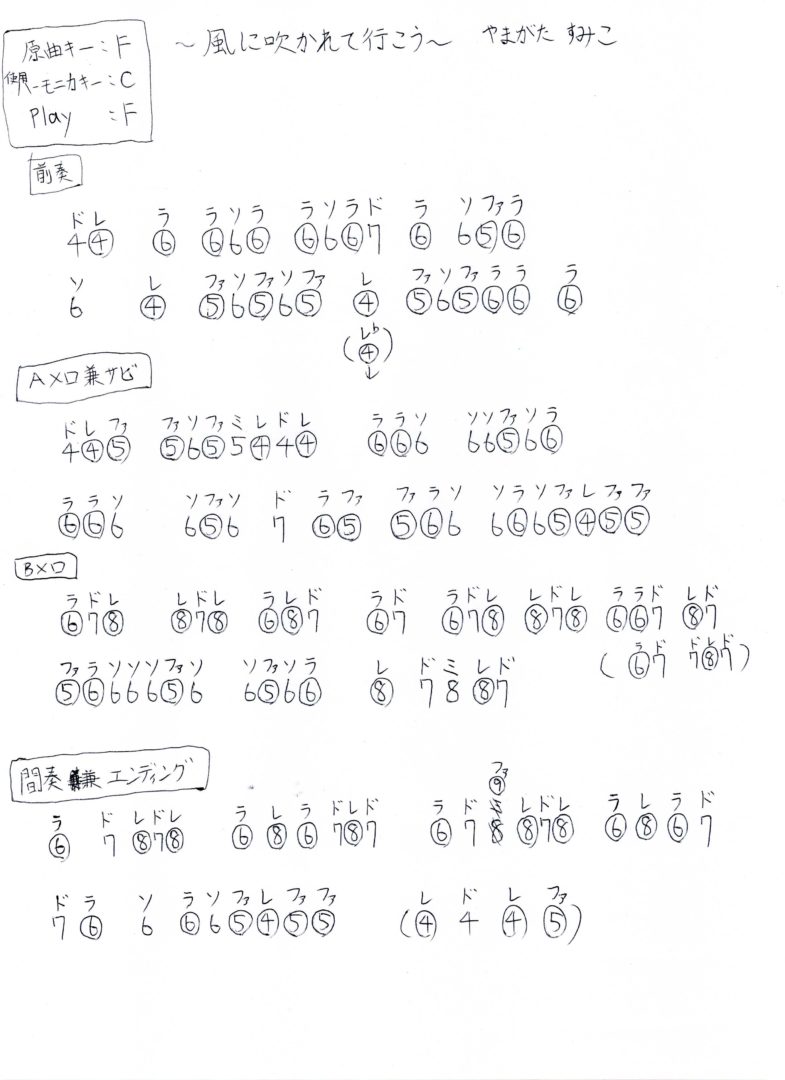 原曲キー:F
使用ハーモニカキー:C
Play :F
～風に吹かれて行こう～ やまがた すみこ
前奏
ド レ ラ ラ ソ ラ ラ ソ ラ ド ラ ソ ファ ラ
4 ④ ⑥ ⑥ 6 ⑥ ⑥ 6 ⑥ 7 ⑥ 6 ⑤ ⑥
ソ レ ファ ソ ファ ソ ファ レ ファ ソ ファ ラ ラ ラ
6 ④ ⑤ 6 ⑤ 6 ⑤ ④ ⑤ 6 ⑤ ⑥ ⑥ ⑥
レ♭
(④)
↓
Aメロ兼サビ
ド レ ファ ファ ソ ファ ミ レ ド レ ラ ラ ソ ソ ソ ファ ソ ラ
4 ④ ⑤ ⑤ 6 ⑤ 5 ④ 4 ④ ⑥ ⑥ 6 6 6 ⑤ 6 ⑥
ラ ラ ソ ソ ファ ソ ド ラ ファ ファ ラ ソ ソ ラ ソ ファ レ ファ ファ
⑥ ⑥ 6 6 ⑤ 6 7 ⑥ ⑤ ⑤ ⑥ 6 6 ⑥ 6 ⑤ ④ ⑤ ⑤
Bメロ
ラ ド レ レ ド レ ラ レ ド ラ ド ラ ド レ レ ド レ ラ ラ ド レ ド
⑥ 7 ⑧ ⑧ 7 ⑧ ⑥ ⑧ 7 ⑥ 7 ⑥ 7 ⑧ ⑧ 7 ⑧ ⑥ ⑥ 7 ⑧ 7
ラ ド ド レ ド
(⑥ 7 7 ⑧ 7)
ファ ラ ソ ソ ソ ファ ソ ソ ファ ソ ラ レ ド ミ レ ド
⑤ ⑥ 6 6 6 ⑤ 6 6 ⑤ 6 ⑥ ⑧ 7 8 ⑧ 7
間奏兼エンディング
ファ
⑨
ラ ド レ ド レ ラ レ ラ ド レ ド ラ ド ミ レ ド レ ラ レ ラ ド
⑥ 7 ⑧ 7 ⑧ ⑥ ⑧ ⑥ 7 ⑧ 7 ⑥ 7 8 ⑧ 7 ⑧ ⑥ ⑧ ⑥ 7
ド ラ ソ ラ ソ ファ レ ファ ファ レ ド レ ファ
7 ⑥ 6 ⑥ 6 ⑤ ④ ⑤ ⑤ (④ 4 ④ ⑤)